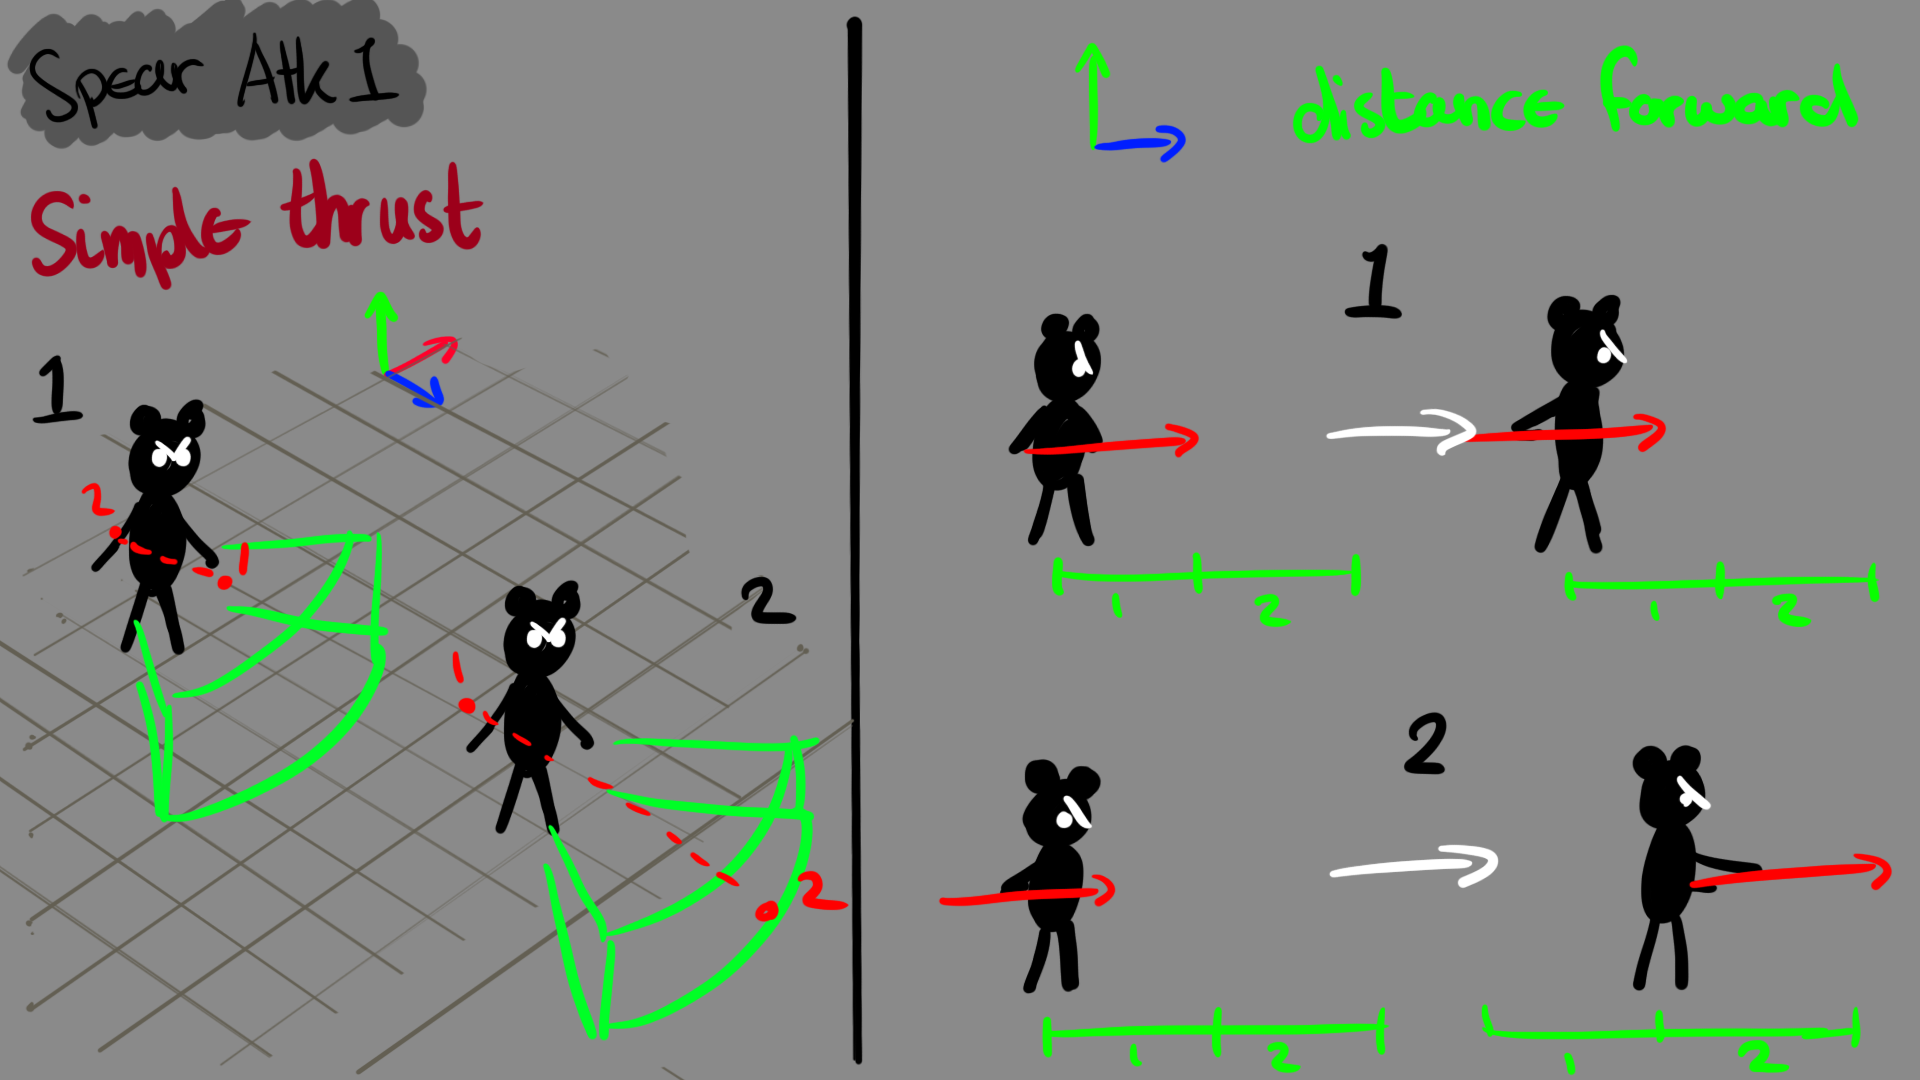 Spear Atk 1
Simple thrust
1
2
1
2
1
2
distance forward
1
1
2
1
2
2
1
2
1
2